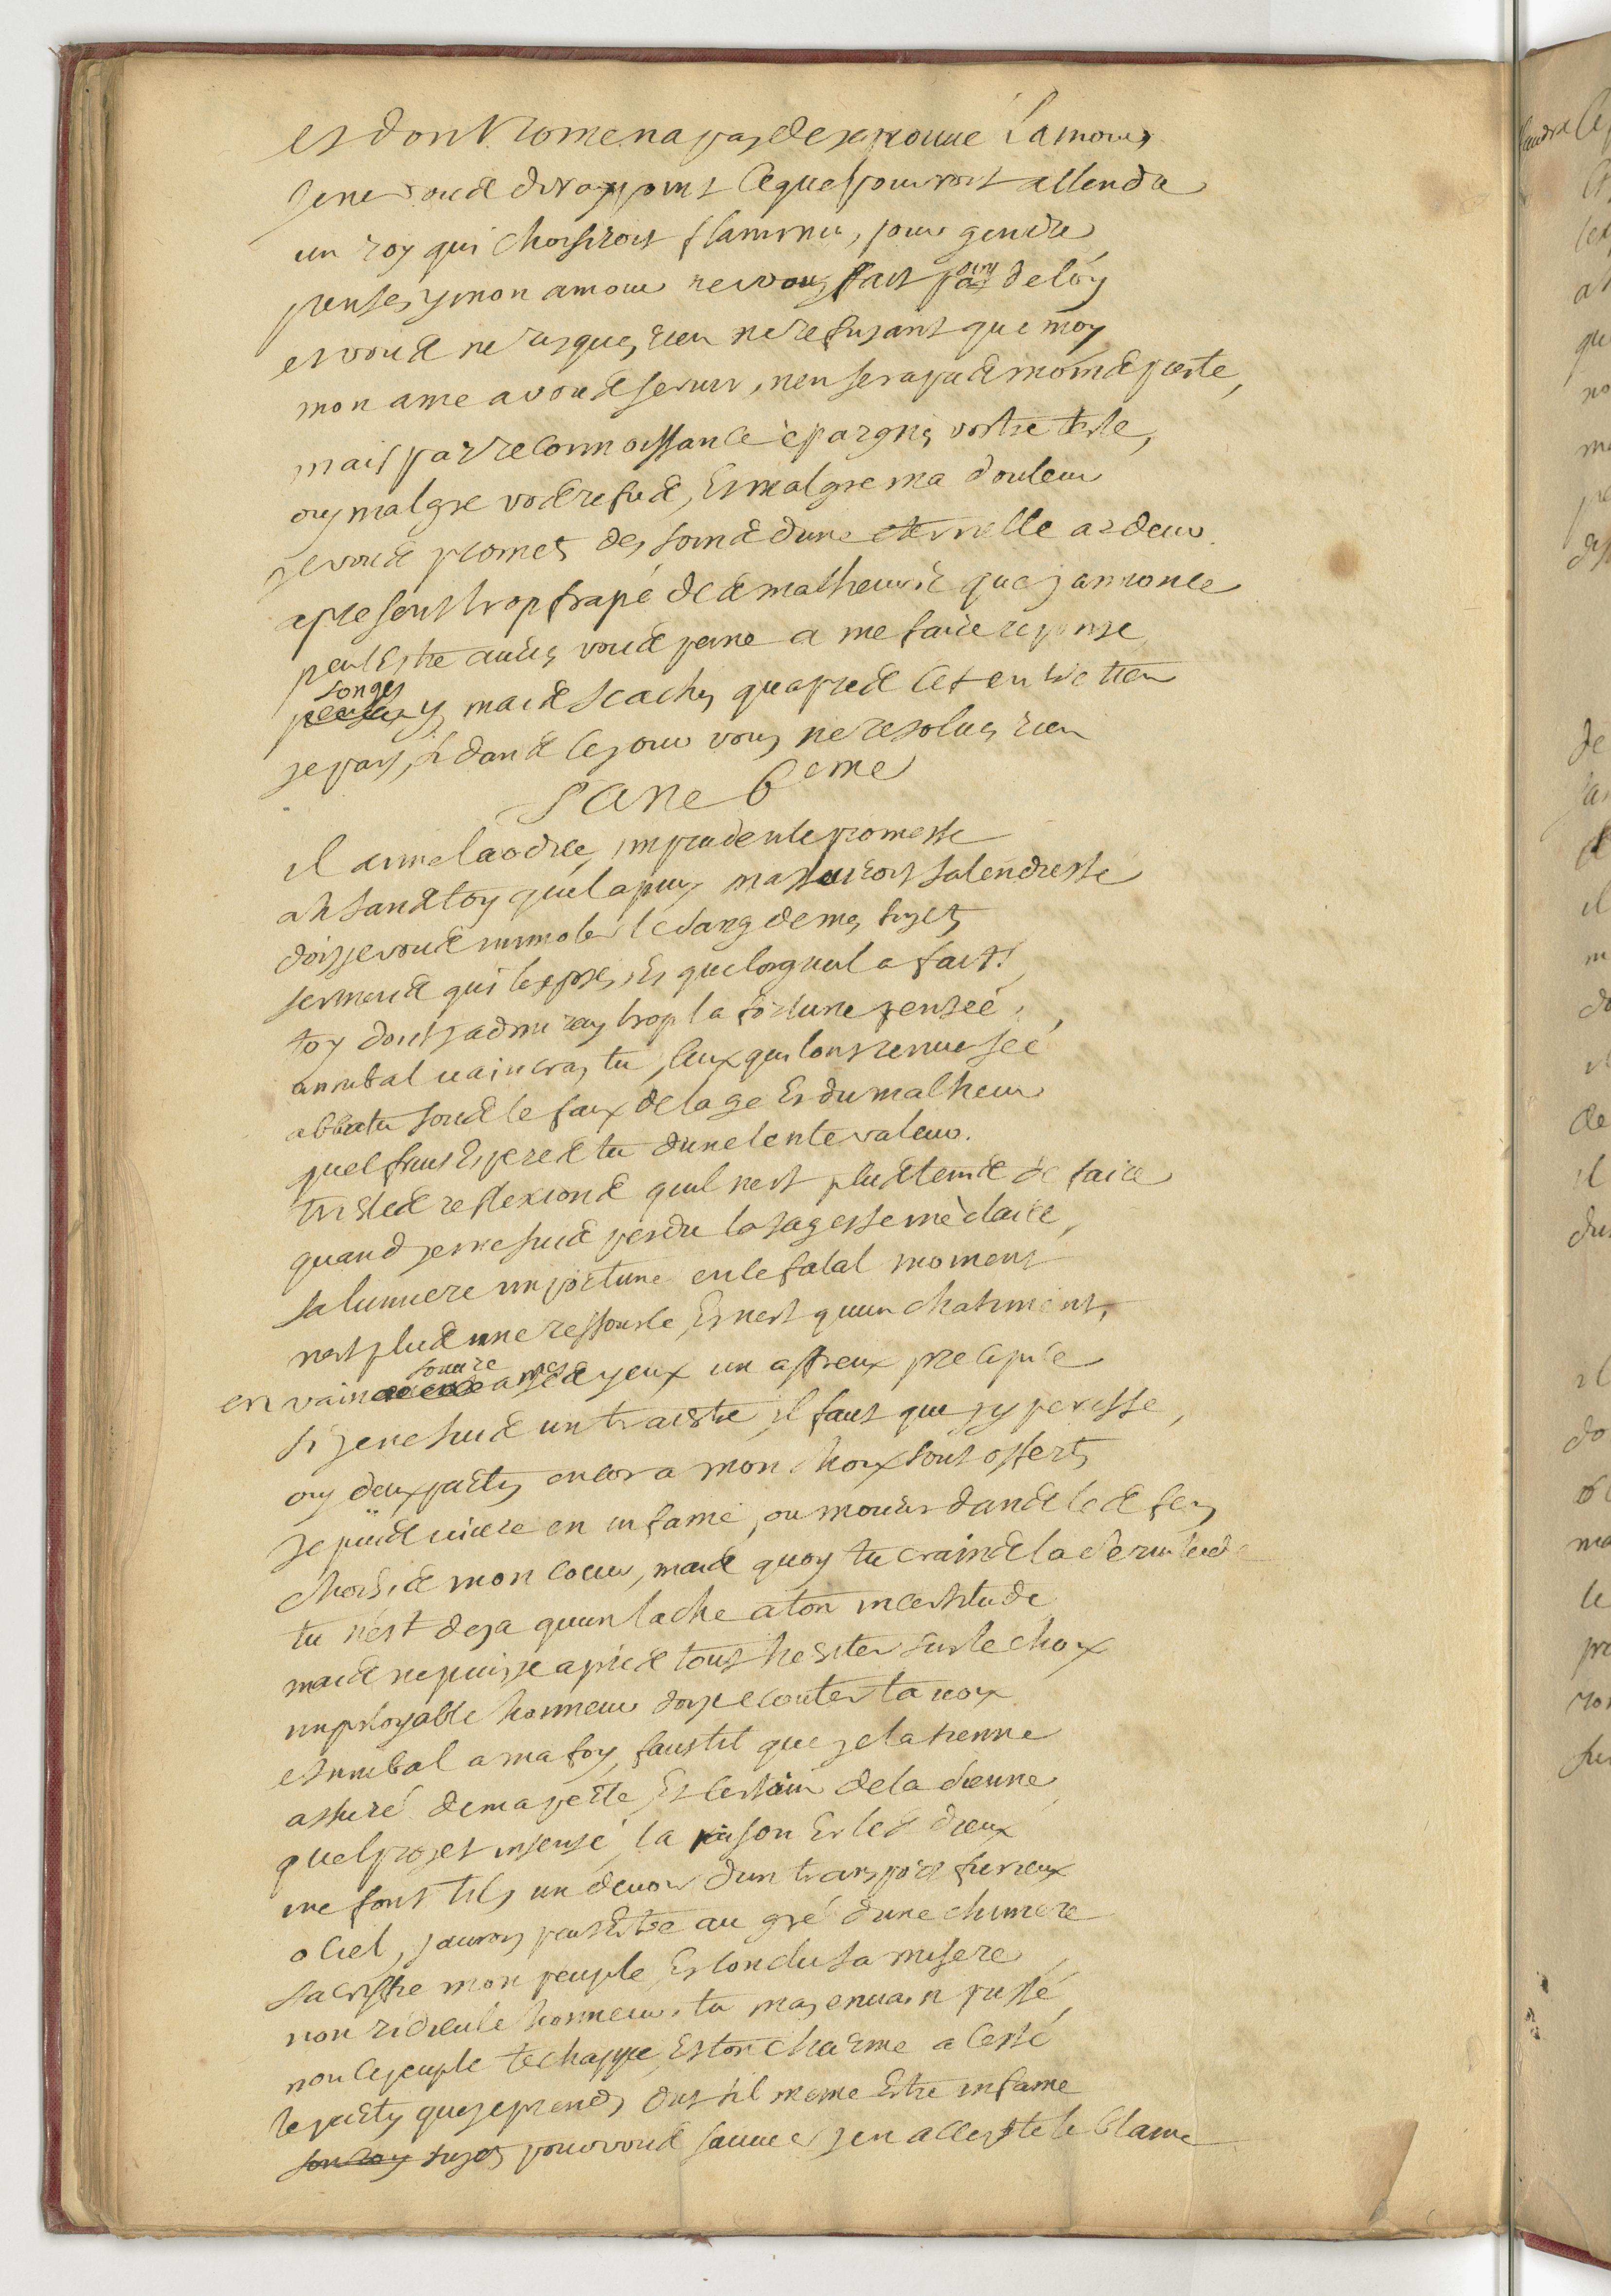 et dont Rome na pas deseprouué l'amour
je ne vous diray point ce quel pouvroit attendre
un roy qui choisiroit flaminiu, pour gendre
pensez y mon amour ne vous fait point de loy
et vous ne risquez rien ne refusant que moy
mon ame a vous servir, nen sera pas moins preste,
mais par reconnoissance épargnez vostre teste,
ouy malgre vos refus, Et malgre ma douleur
je vous promets des soins dune eternelle ardeur.
apresent trop frapé des malheurs que jannonce
peut Estre auriez vous peine a me faire reponse
songez y, mais scachez quapres cet entretien
je pars, si dans ce jour vous ne resoluez rien
Sane 6eme
il aime laodice, imprudente promesse
ah sans toy quel apuy massuroit sa tendresse
doisje vous immoler le sang de mes sujets
serments qui lexposez, Et que lorgueil a faits!
toy dont jadmiray trop la fortune pensée,
annibal vaincras tu, ceux qui lont renuersée
abbatu sous le faix de lage Et du malheur
quel fruit Esperes tu dune lente valeur.
tristes reflexions quil nest plus tems de faire
quand je me suis perdu la sagesse méclaire,
sa lumiere importune en ce fatal moment
nest plus une ressource, Et nest quun chatiment,
en vain souure a mes yeux un affreux precipice
si je ne suis un traistre, il faut que jy perisse,
ouy deux partis encor a mon choix sont offerts
je puis vivre en infame, ou mourir dans les fers
choisis mon cœur, mais quoy tu crains la seruitude
tu nest deja quun lache a ton incertitude
mais ne puisje apres tout hesiter sur le choix
impitoyable honneur doisje ecouter ta voix
annibal a ma foy, faut til que je la tienne
assuré de ma perte, Et certain de la sienne
quel projet insensé, la raison Et les dieux
me font tils un devoir dun transport furieux
o ciel, jaurois peut Estre au gré dune chimere
sacrifié mon peuple, Et conclu sa misere
non ridicule honneur, tu mas en vain pressé
non ce peuple téchappe, Et ton charme a cessé
le party que je prends, dut til meme Estre infame
sujets pour vous sauver jen accepte le blame